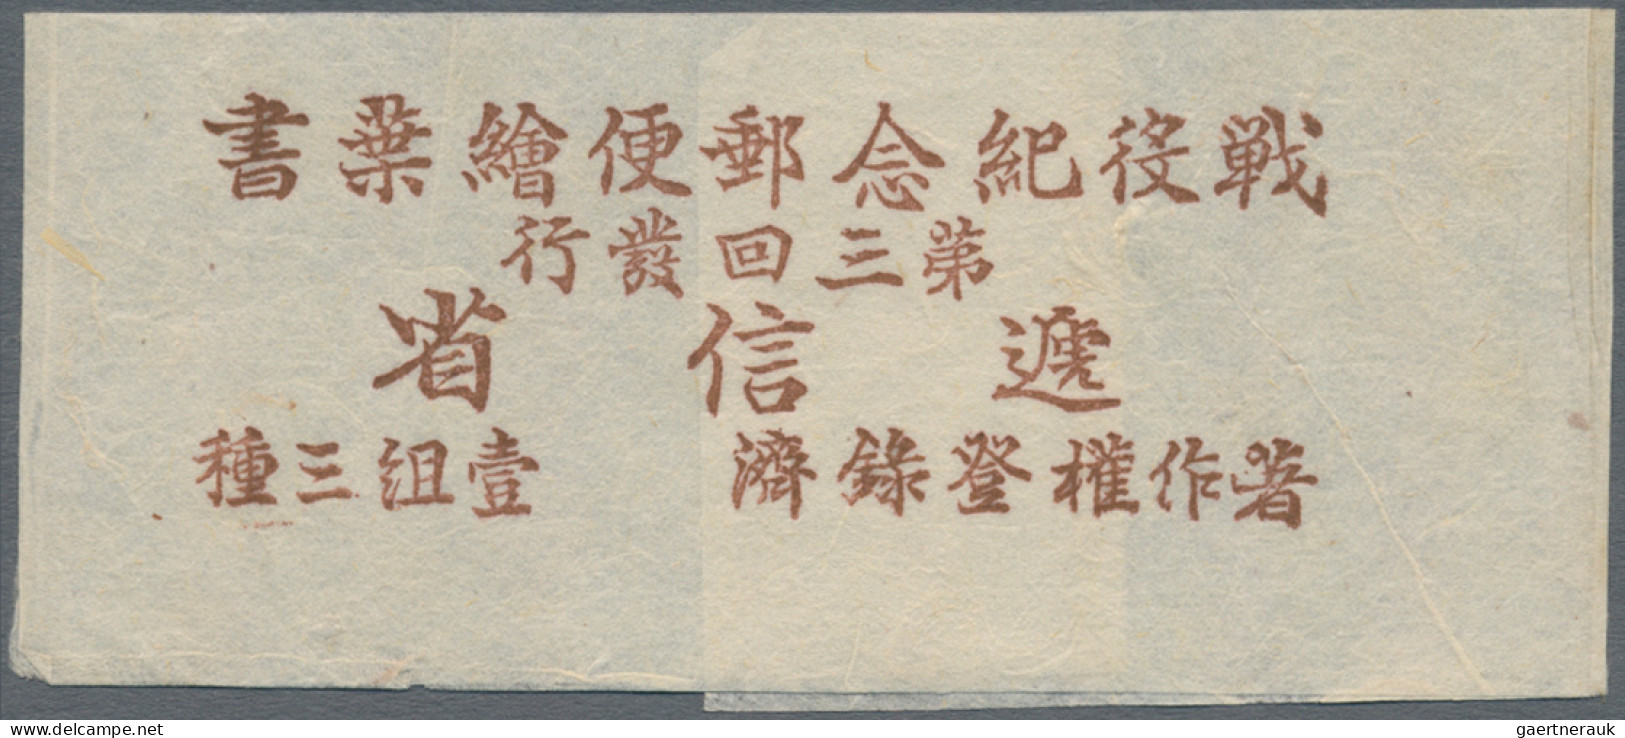 戰役紀念郵便繪葉書
第三回發行
遞信省
著作權登錄濟 壹組三種
delcampe.net
gaertnerauk